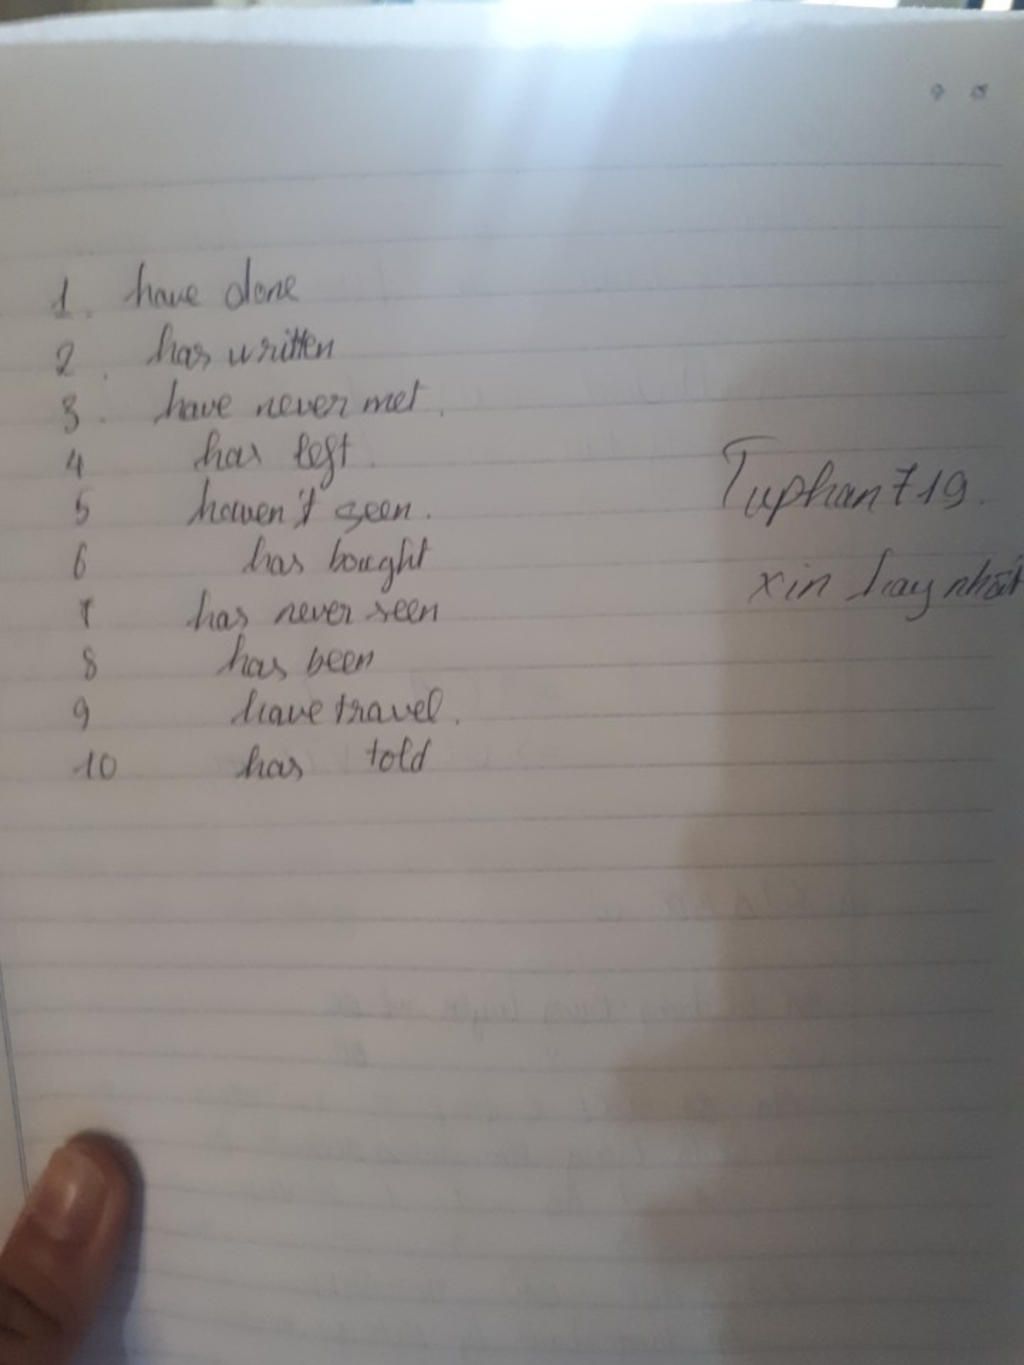 1. have done
2. has written
3. have never met.
4 has left.
5 haven't seen.
6 has bought
7 has never seen
8 has been
9 have travel.
10 has told
Tuphan719.
xin hay nhất